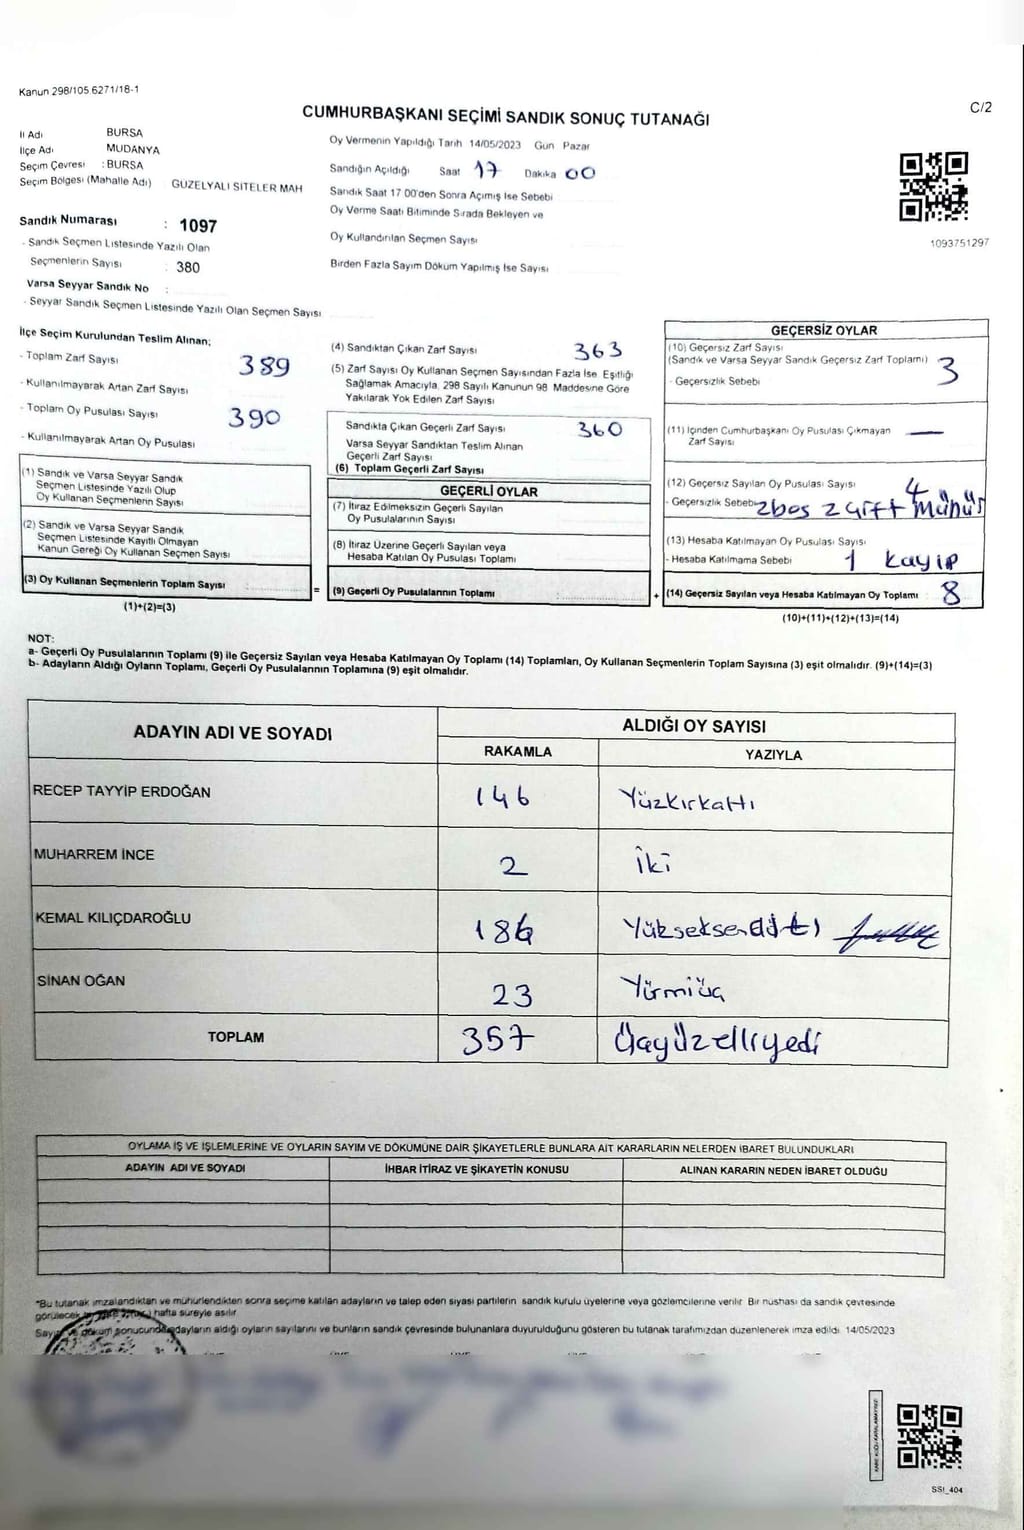 Kanun 298/105 6271/18-1
C/2
CUMHURBAŞKANI SEÇİMİ SANDIK SONUÇ TUTANAĞI
İl Adı BURSA
İlçe Adı MUDANYA
Seçim Çevresi : BURSA
Seçim Bölgesi (Mahalle Adı) GÜZELYALI SİTELER MAH
Sandık Numarası : 1097
- Sandık Seçmen Listesinde Yazılı Olan
Seçmenlerin Sayısı : 380
Varsa Seyyar Sandık No :
- Seyyar Sandık Seçmen Listesinde Yazılı Olan Seçmen Sayısı
Oy Vermenin Yapıldığı Tarih 14/05/2023 Gün Pazar
Sandığın Açıldığı Saat 17 Dakika 00
Sandık Saat 17 00'den Sonra Açımış İse Sebebi
Oy Verme Saati Bitiminde Sırada Bekleyen ve
Oy Kullandırılan Seçmen Sayısı
Birden Fazla Sayım Döküm Yapılmış İse Sayısı
1093751297
İlçe Seçim Kurulundan Teslim Alınan;
- Toplam Zarf Sayısı 389
- Kullanılmayarak Artan Zarf Sayısı
- Toplam Oy Pusulası Sayısı 390
- Kullanılmayarak Artan Oy Pusulası
(1) Sandık ve Varsa Seyyar Sandık
Seçmen Listesinde Yazılı Olup
Oy Kullanan Seçmenlerin Sayısı
(2) Sandık ve Varsa Seyyar Sandık
Seçmen Listesinde Kayıtlı Olmayan
Kanun Gereği Oy Kullanan Seçmen Sayısı
(3) Oy Kullanan Seçmenlerin Toplam Sayısı :
(1)+(2)=(3)
(4) Sandıktan Çıkan Zarf Sayısı 363
(5) Zarf Sayısı Oy Kullanan Seçmen Sayısından Fazla İse, Eşitliği
Sağlamak Amacıyla, 298 Sayılı Kanunun 98. Maddesine Göre
Yakılarak Yok Edilen Zarf Sayısı
Sandıkta Çıkan Geçerli Zarf Sayısı 360
Varsa Seyyar Sandıktan Teslim Alınan
Geçerli Zarf Sayısı
(6) Toplam Geçerli Zarf Sayısı
GEÇERLİ OYLAR
(7) İtiraz Edilmeksizin Geçerli Sayılan
Oy Pusulalarının Sayısı
(8) İtiraz Üzerine Geçerli Sayılan veya
Hesaba Katılan Oy Pusulası Toplamı
= (9) Geçerli Oy Pusulalarının Toplamı : +
GEÇERSİZ OYLAR
(10) Geçersiz Zarf Sayısı
(Sandık ve Varsa Seyyar Sandık Geçersiz Zarf Toplamı) 3
- Geçersizlik Sebebi
(11) İçinden Cumhurbaşkanı Oy Pusulası Çıkmayan —
Zarf Sayısı
(12) Geçersiz Sayılan Oy Pusulası Sayısı 4
- Geçersizlik Sebebi 2boş 2 çift mühür
(13) Hesaba Katılmayan Oy Pusulası Sayısı
- Hesaba Katılmama Sebebi 1 kayıp
(14) Geçersiz Sayılan veya Hesaba Katılmayan Oy Toplamı : 8
(10)+(11)+(12)+(13)=(14)
NOT:
a- Geçerli Oy Pusulalarının Toplamı (9) ile Geçersiz Sayılan veya Hesaba Katılmayan Oy Toplamı (14) Toplamları, Oy Kullanan Seçmenlerin Toplam Sayısına (3) eşit olmalıdır. (9)+(14)=(3)
b- Adayların Aldığı Oyların Toplamı, Geçerli Oy Pusulalarının Toplamına (9) eşit olmalıdır.
ADAYIN ADI VE SOYADI ALDIĞI OY SAYISI
RAKAMLA YAZIYLA
RECEP TAYYİP ERDOĞAN 146 Yüzkırkaltı
MUHARREM İNCE 2 İki
KEMAL KILIÇDAROĞLU 186
SİNAN OĞAN 23 Yirmiüç
TOPLAM 357 Üçyüzelliyedi
OYLAMA İŞ VE İŞLEMLERİNE VE OYLARIN SAYIM VE DÖKÜMÜNE DAİR ŞİKAYETLERLE BUNLARA AİT KARARLARIN NELERDEN İBARET BULUNDUKLARI
ADAYIN ADI VE SOYADI İHBAR İTİRAZ VE ŞİKAYETİN KONUSU ALINAN KARARIN NEDEN İBARET OLDUĞU
*Bu tutanak imzalandıktan ve mühürlendikten sonra seçime katılan adayların ve talep eden siyasi partilerin sandık kurulu üyelerine veya gözlemcilerine verilir. Bir nüshası da sandık çevresinde
görülecek hafta süreyle asılır.
Sayım döküm sonucunda adayların aldığı oyların sayılarını ve bunların sandık çevresinde bulunanlara duyurulduğunu gösteren bu tutanak tarafımızdan düzenlenerek imza edildi. 14/05/2023
SSI_404